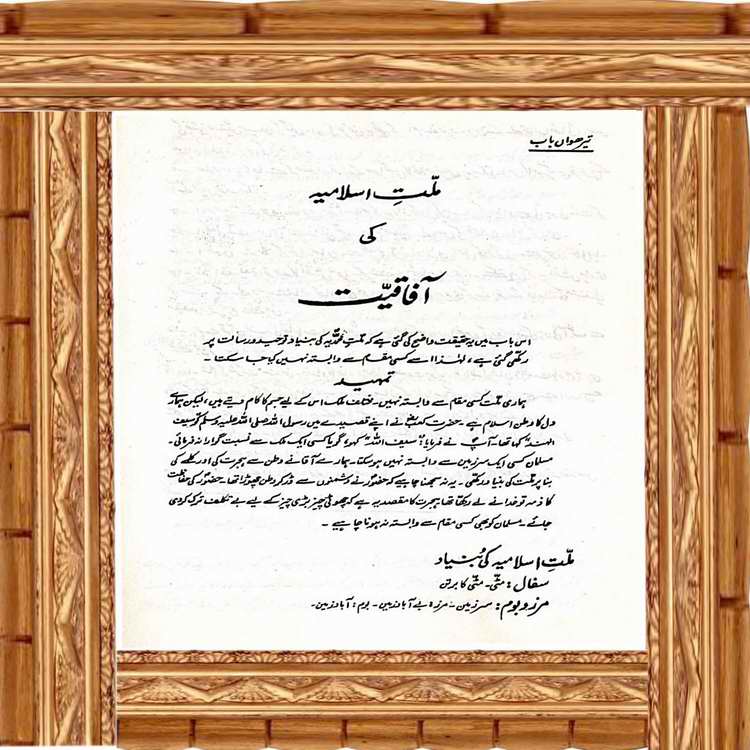 تیرھواں باب
ملّتِ اسلامیہ
کی
آفاقیّت
اس باب میں یہ حقیقت واضح کی گئی ہے کہ ملّتِ محمّدیہؐ کی بنیاد توحید و رسالت پر
رکھی گئی ہے، لہٰذا اسے کسی مقام سے وابستہ نہیں کیا جا سکتا۔
تمہید
ہماری ملّت کسی مقام سے وابستہ نہیں۔ مختلف ملک اس کے لیے جسم کا کام دیتے ہیں، لیکن ہمارے
دل کا وطن اسلام ہے۔ حضرت کعبؓ نے اپنے قصیدے میں رسول اللہ صلی اللہ علیہ وسلم کو سیف
الہند کہا تھا۔ آپؐ نے فرمایا: "سیف اللہ" کہو، گویا کسی ایک ملک سے نسبت گوارا نہ فرمائی۔
مسلمان کسی ایک سرزمین سے وابستہ نہیں ہو سکتا۔ ہمارے آقا نے وطن سے ہجرت کی اور کلمے کی
بنا پر ملّت کی بنیاد رکھی۔ یہ نہ سمجھنا چاہیے کہ حضورؐ نے دشمنوں سے ڈر کر وطن چھوڑا تھا۔ حضورؐ کی حفاظت
کا ذمہ تو خدا نے لے رکھا تھا ہجرت کا مقصد یہ ہے کہ چھوٹی چیز بڑی چیز کے لیے بے تکلف ترک کر دی
جائے۔ مسلمان کو بھی کسی مقام سے وابستہ نہ ہونا چاہیے۔
ملّتِ اسلامیہ کی بُنیاد
سفال: مٹّی۔ مٹّی کا برتن
مرز و بوم: سرزمین۔ مرز: بے آباد زمین۔ بوم: آباد زمین۔